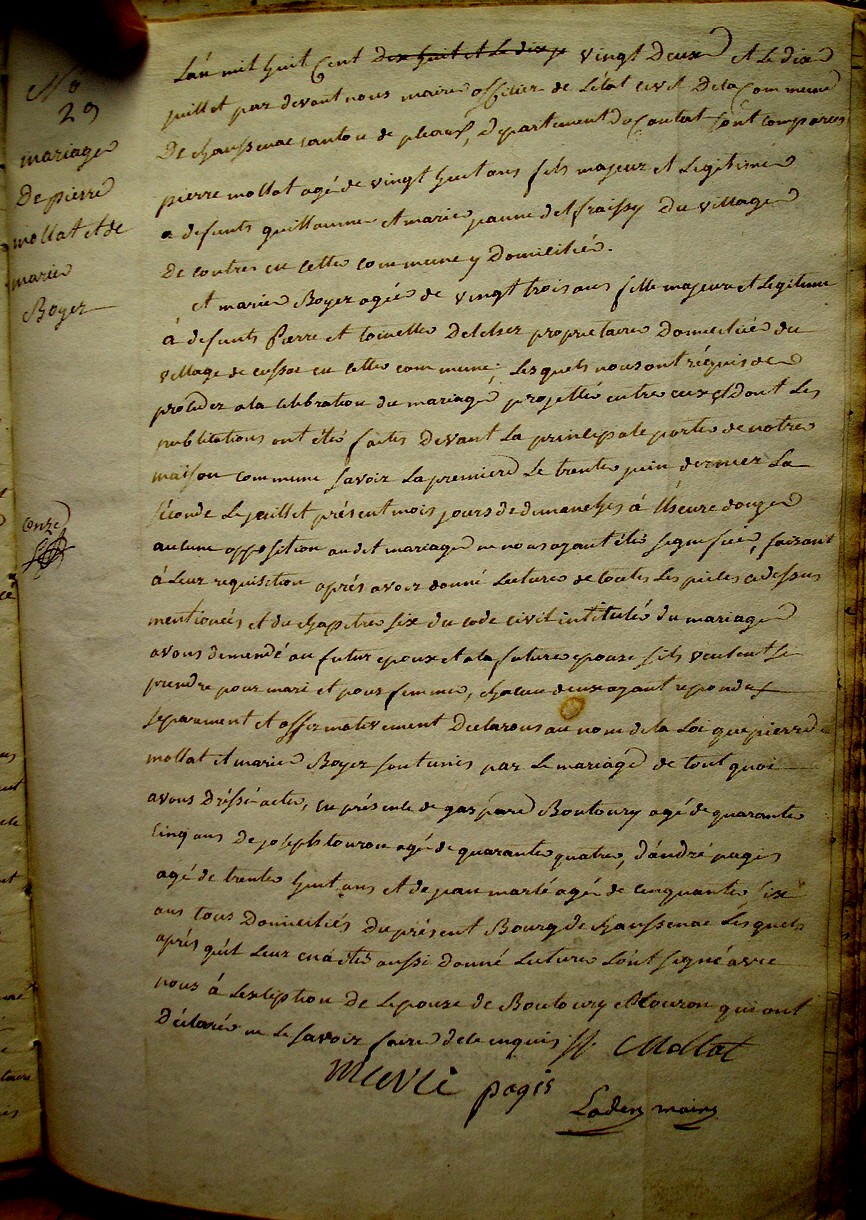 No
29
mariage
De pierre
mollat et de
marie
Boyer
L'an mil huit Cent dix huit et le dix vingt Deux et Le dix
juillet par devant nous maire officier de L'état civil De la Commune
De chaussenac canton de pleaux, Departement du Cantal sont comparés
pierre mollat agé de vingt huit ans fils majeur et Legitime
a defunts guillaume et marie jeanne delfraissy Du village
De contres en cette commune y Domicilié.
et marie Boyer agée de vingt trois ans fille majeure et Legitime
à defunts Pierre et toinette Delcher proprietaire Domiciliée du
village de cussac en cette commune. Lesquels nous ont réquis de
proceder a la celebration du mariage projetté entre eux et Dont Les
publications ont étés faites Devant La principale porte de notre
maison commune savoir La premiere Le trente juin dernier La
séconde Le juillet présent mois jours de dimanches à l'heure de
aucune opposition audit mariage ne nous ayant étés signifié, faisant
à Leur requisition aprés avoir donné Lecture de toutes Les pieces cidessus
mentionées et du chapitre six du code civil intitulé du mariage
avons demendé au futur epoux et a la future epouse s'ils veulent se
prendre pour mari et pour femme, chacun d'eux ayant repondu
separement et affirmativement Declarons au nom de la Loi que pierre
mollat et marie Boyer sont unis par Le mariage de tout quoi
avons Dréssé acte, en présence de gaspard Boutoury agé de quarante
Cinq ans De joseph touron agé de quarante quatre, d'andré pagis
agé de trente huit ans et de jean marté agé de cinquante six
ans tous Domiciliés du présent Bourg de chaussenac Lesquels
aprés qu'il Leur en a étés aussi donné Lecture L'ont signé avec
nous à L'exception De L'epouse de Boutoury et touron qui ont
Déclaré ne Le savoir faire de ce enquis. Mollat
pagis
maire